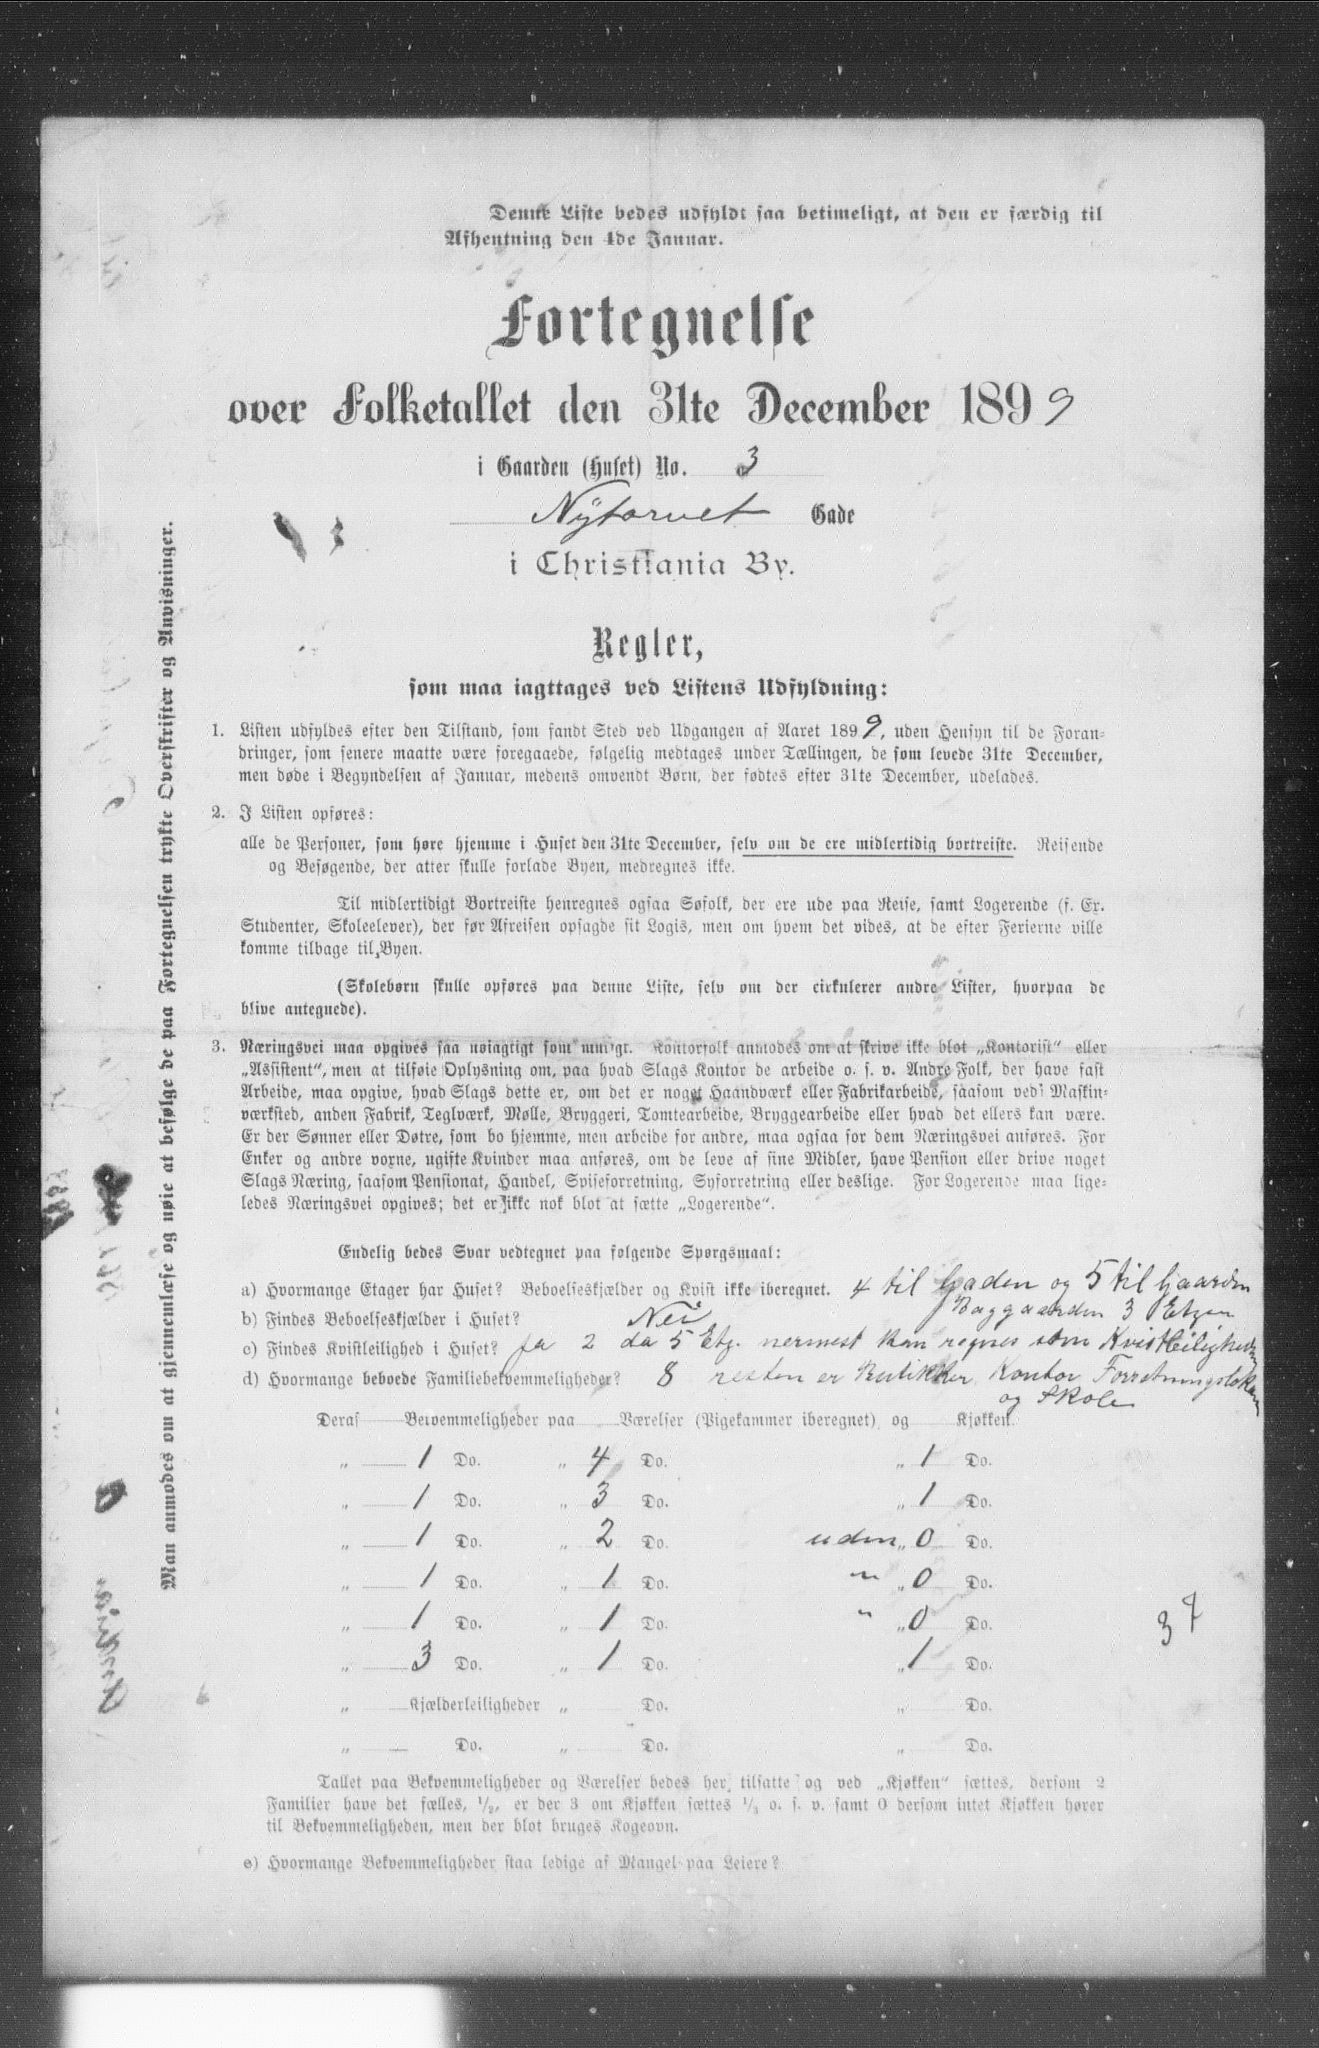 Denne Liste bedes udfyldt saa betimeligt, at den er færdig til
Afhentning den 4de Januar.
Fortegnelse
over Folketallet den 31te December 1899
i Gaarden (Huset) No. 3
Nÿtorvet Gade
i Christiania By.
Regler,
som maa iagttages ved Listens Udfyldning:
1. Listen udfyldes efter den Tilstand, som fandt Sted ved Udgangen af Aaret 1899, uden Hensyn til de Foran-
dringer, som senere maatte være foregaaede, følgelig medtages under Tællingen, de som levede 31te December,
men døde i Begyndelsen af Januar, medens omvendt Børn, der fødtes efter 31te December, udelades.
2. I Listen opføres:
alle de Personer, som høre hjemme i Huset den 31te December, selv om de ere midlertidig bortreiste. Reisende
og Besøgende, der atter skulle forlade Byen, medregnes ikke.
Til midlertidigt Bortreiste henregnes ogsaa Søfolk, der ere ude paa Reise, samt Logerende (f. Ex.
Studenter, Skoleelever), der før Afreisen opsagde sit Logis, men om hvem det vides, at de efter Ferierne ville
komme tilbage til Byen.
(Skolebørn skulle opføres paa denne Liste, selv om der cirkulerer andre Lister, hvorpaa de
blive antegnede).
3. Næringsvei maa opgives saa nøiagtigt som muligt. Kontorfolk anmodes om at skrive ikke blot „Kontorist“ eller
„Assistent“, men at tilføie Oplysning om, paa hvad Slags Kontor de arbeide o. s. v. Andre Folk, der have fast
Arbeide, maa opgive, hvad Slags dette er, om det er noget Haandværk eller Fabrikarbeide, saasom ved Maskin-
værksted, anden Fabrik, Teglværk, Mølle, Bryggeri, Tomtearbeide, Bryggearbeide eller hvad det ellers kan være.
Er der Sønner eller Døtre, som bo hjemme, men arbeide for andre, maa ogsaa for dem Næringsvei anføres. For
Enker og andre voxne, ugifte Kvinder maa anføres, om de leve af sine Midler, have Pension eller drive noget
Slags Næring, saasom Pensionat, Handel, Spiseforretning, Syforretning eller deslige. For Logerende maa lige-
ledes Næringsvei opgives; det er ikke nok blot at sætte „Logerende“.
Endelig bedes Svar vedtegnet paa følgende Spørgsmaal:
a) Hvormange Etager har Huset? Beboelseskjælder og Kvist ikke iberegnet. 4 til Gaden og 5 til Gaarden
Baggaarden 3 Etger
b) Findes Beboelseskjælder i Huset? Nei
c) Findes Kvistleilighed i Huset? Ja 2 da 5 Etg. nermest kan regnes som Kvistleiligheder
d) Hvormange beboede Familiebekvemmeligheder? 8 resten er Butikker Kontor Forretningslokaler
og Skole
Deraf Bekvemmeligheder paa Værelser (Pigekammer iberegnet) og Kjøkken
„ 1 Do. „ 4 Do. „ 1 Do.
„ 1 Do. „ 3 Do. „ 1 Do.
„ 1 Do. „ 2 Do. uden „ 0 Do.
„ 1 Do. „ 1 Do. " „ 0 Do.
„ 1 Do. „ 1 Do. " „ 0 Do.
„ 3 Do. „ 1 Do. „ 1 Do.
„ Kjælderleiligheder „ Do. „ Do.
„ Do. „ Do. „ Do.
37
Tallet paa Bekvemmeligheder og Værelser bedes her tilsatte og ved „Kjøkken“ sættes, dersom 2
Familier have det fælles, 1/2, er der 3 om Kjøkken sættes 1/3 o. s. v. samt 0 dersom intet Kjøkken hører
til Bekvemmeligheden, men der blot bruges Kogeovn.
e) Hvormange Bekvemmeligheder staa ledige af Mangel paa Leiere?
Man anmodes om at gjennemlæse og nøie at befølge de paa Fortegnelsen trykte Overskrifter og Anvisninger.